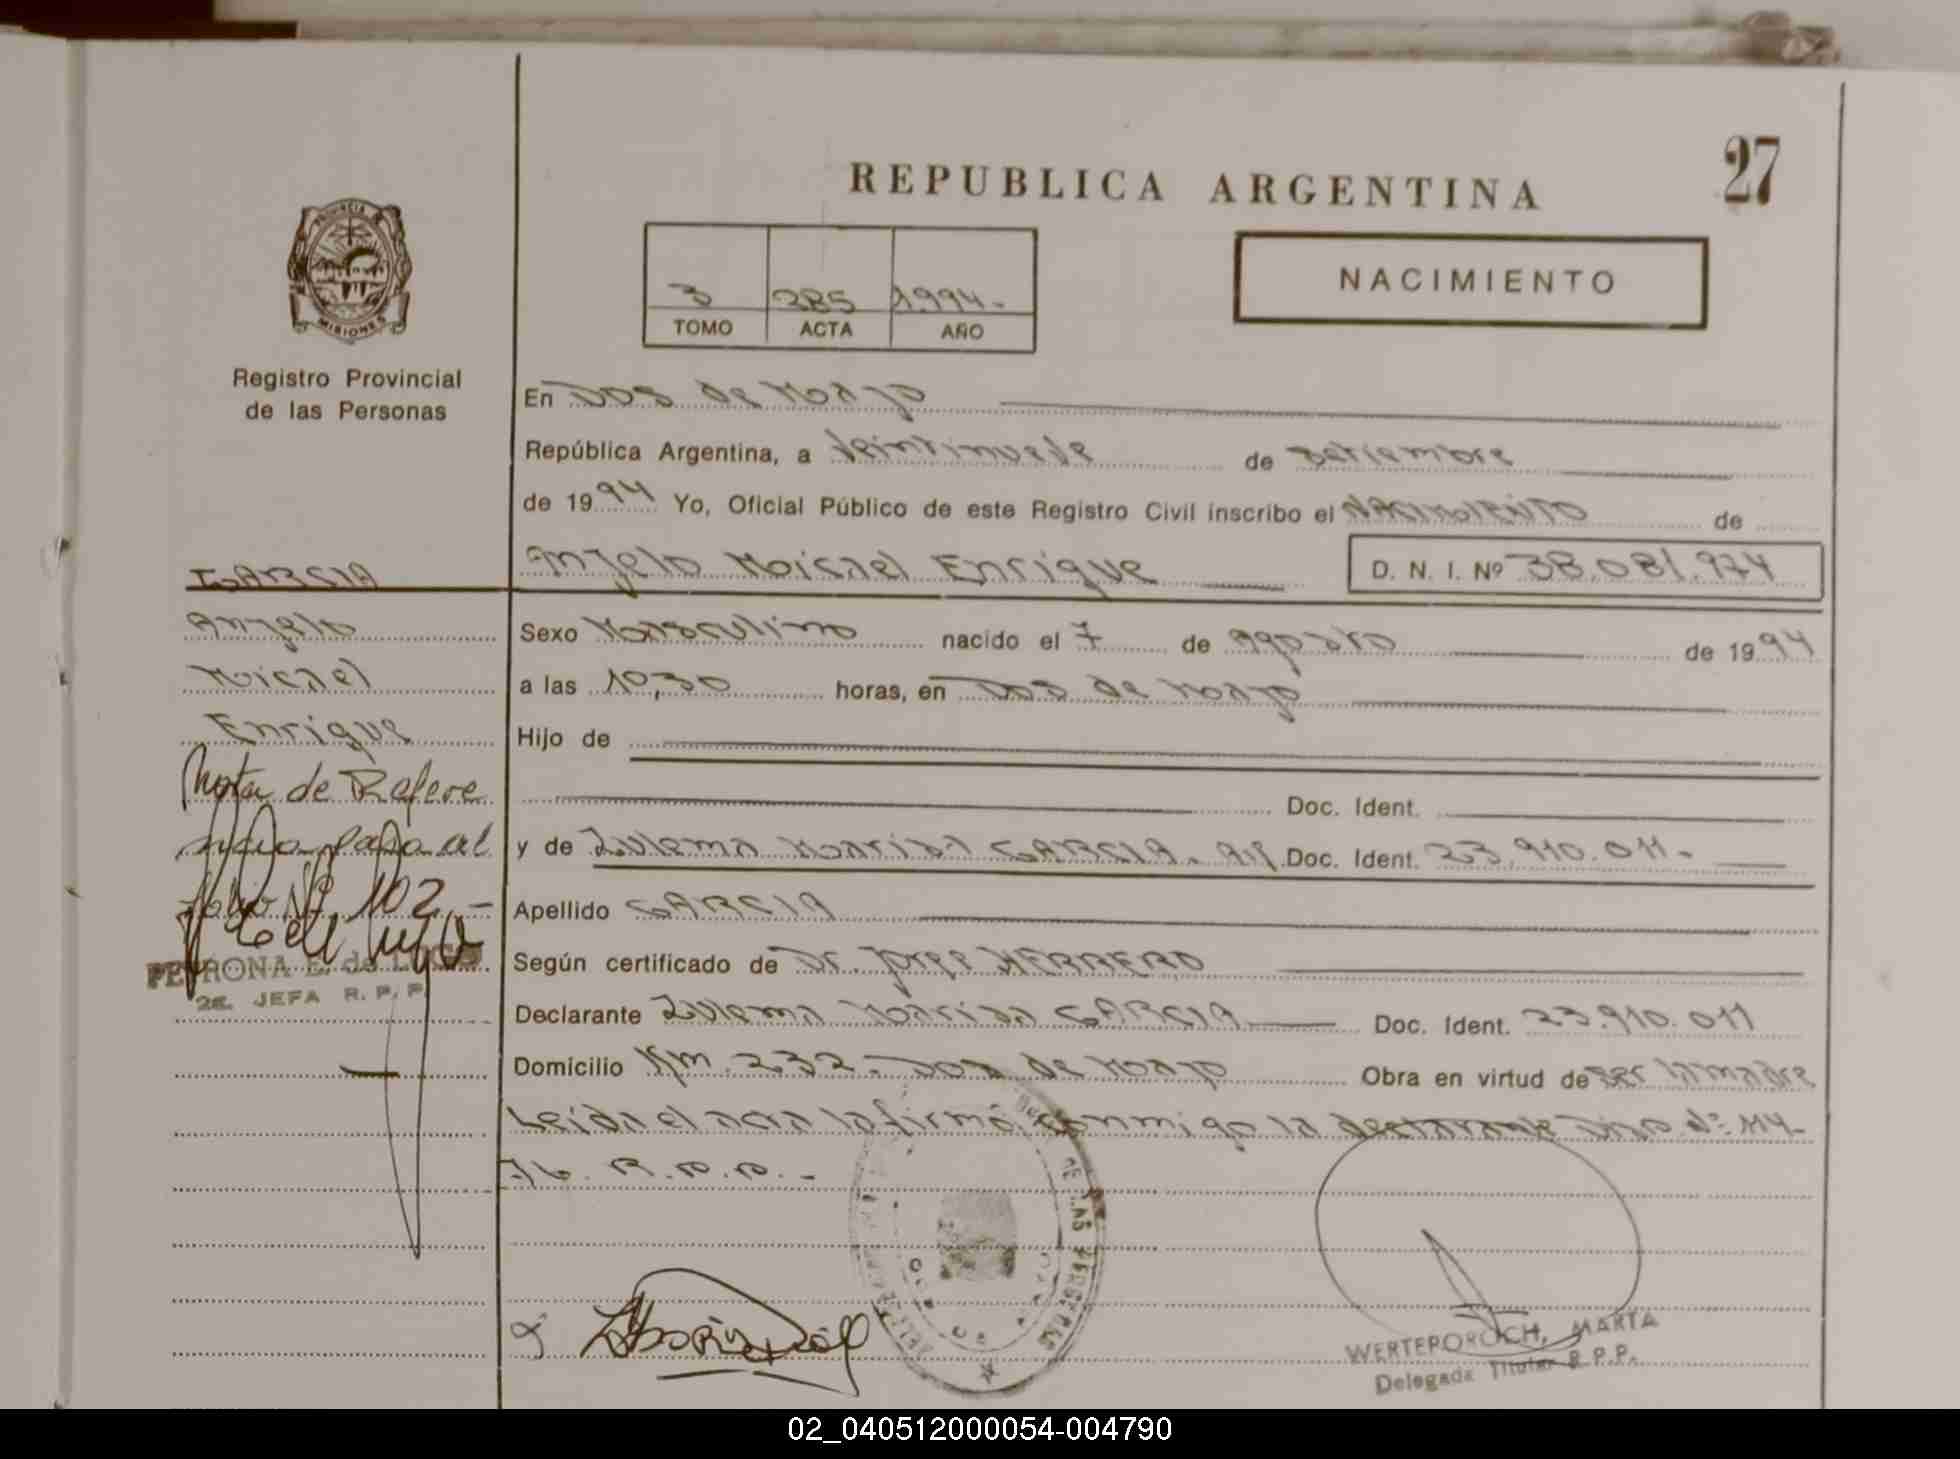 27
REPUBLICA ARGENTINA
PROVINCIA DE
MISIONES
Registro Provincial
de las Personas
3 285 1.994.-
TOMO ACTA AÑO
NACIMIENTO
En Dos de Mayo
República Argentina, a Veintinueve de Setiembre
de 1994 Yo, Oficial Público de este Registro Civil inscribo el NACIMIENTO de
Angelo Micael Enrique D. N. I. Nº 38.081.974
Sexo Masculino nacido el 7 de Agosto de 1994
a las 10,30 horas, en Dos de Mayo
Hijo de
Doc. Ident.
y de Zulema Marisa GARCIA. Doc. Ident. 23.910.011.-
Apellido GARCIA
Según certificado de Dr. Jorge HERRERO
Declarante Zulema Marisa GARCIA Doc. Ident. 23.910.011
Domicilio Km. 232. Dos de Mayo Obra en virtud de ser la madre
Leída el acta la firmó conmigo la declarante Disp. Nº 114-
76. R.P.P.-
GARCIA
Angelo
Micael
Enrique
Nota de Refere
ncia pasa al
folio Nº 102.-
PETRONA E. de
JEFA R. P. P.
DE LAS PERSONAS
WERTEPOROCH, MARTA
Delegada Titular R.P.P.
02_040512000054-004790